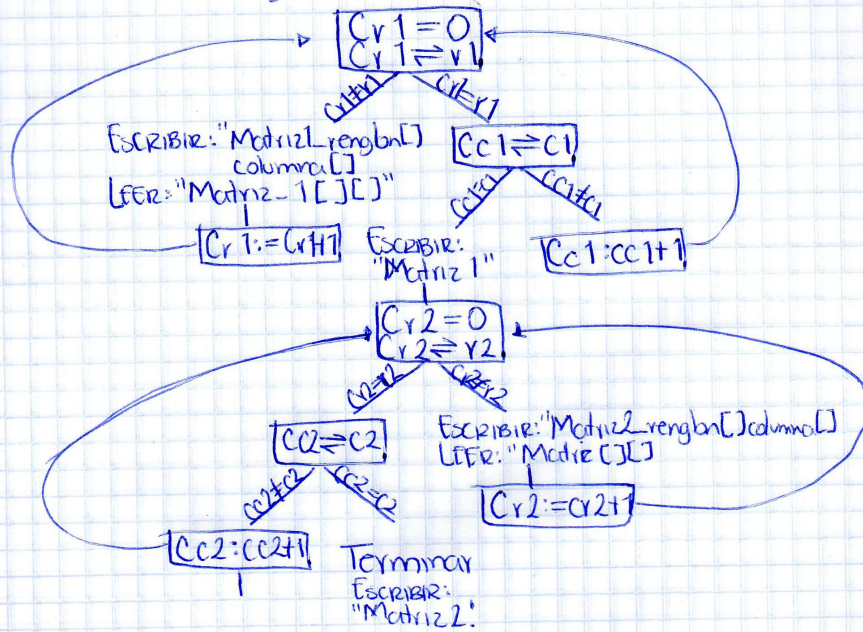 Cr1=0
Cr1⇌r1
Cr1≠r1
Cr1=r1
ESCRIBIR:"Matriz1_renglon[]
columna[]
LEER:"Matriz_1[][]"
Cc1⇌C1
Cc1=c1
CC1≠c1
Cr1:=Cr1+1
ESCRIBIR:
"Matriz 1"
Cc1:cc1+1
Cr2=0
Cr2⇌r2
Cr2=r2
Cr2≠r2
CC2⇌C2
ESCRIBIR:"Matriz2_renglon[]columna[]
LEER:"Matriz[][]
CC2≠c2
CC2=c2
Cr2:=cr2+1
Cc2:cc2+1
Terminar
ESCRIBIR:
"Matriz2"